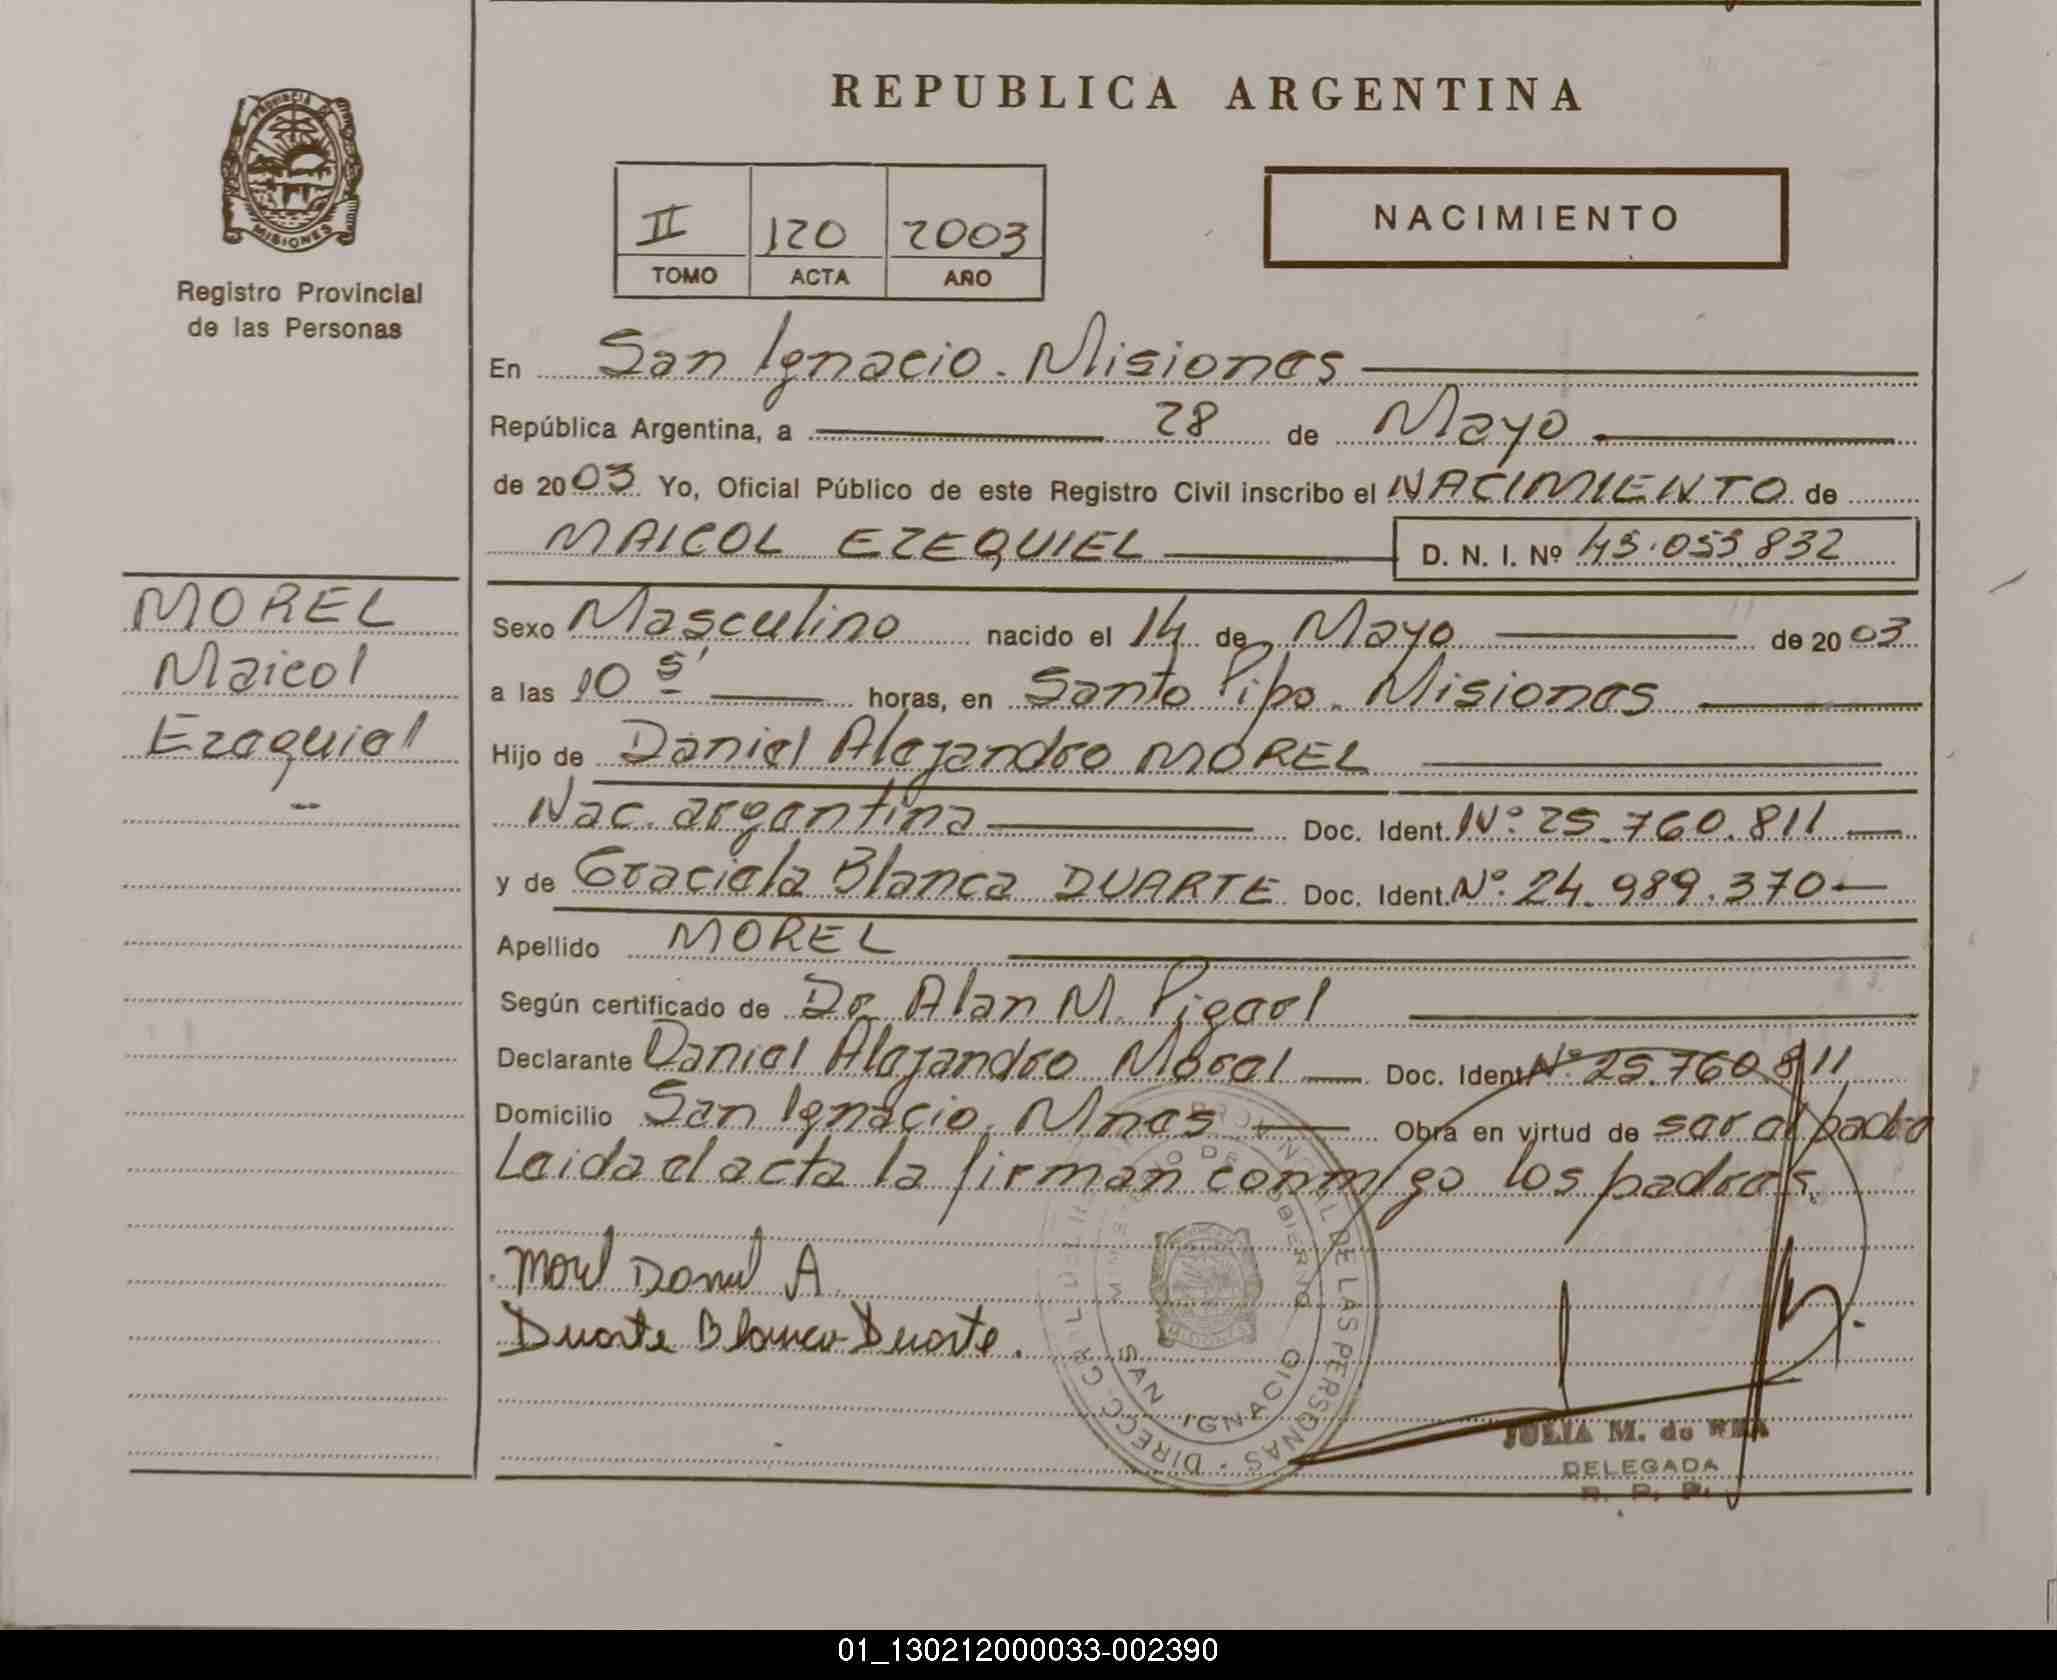 REPUBLICA ARGENTINA
PROVINCIA DE
MISIONES
Registro Provincial
de las Personas
II 120 2003
TOMO ACTA AÑO
NACIMIENTO
En San Ignacio. Misiones
República Argentina, a 28 de Mayo
de 2003 Yo, Oficial Público de este Registro Civil inscribo el NACIMIENTO de
MAICOL EZEQUIEL D. N. I. Nº 45.053.832
MOREL
Maicol
Ezequiel
Sexo Masculino nacido el 14 de Mayo de 2003
a las 10 5' horas, en Santo Pipo. Misiones
Hijo de Daniel Alejandro MOREL
Nac. argentina Doc. Ident. Nº 25.760.811
y de Graciela Blanca DUARTE Doc. Ident. Nº 24.989.370
Apellido MOREL
Según certificado de Dr. Alan M.
Declarante Daniel Alejandro Morel Doc. Ident. Nº 25.760.811
Domicilio San Ignacio. Mnes Obra en virtud de ser el padre
Leida el acta la firman conmigo los padres.
Morel Daniel A
Duarte Blanca Duarte.
SAN IGNACIO
JULIA M. de
DELEGADA
R. P. P.
01_130212000033-002390